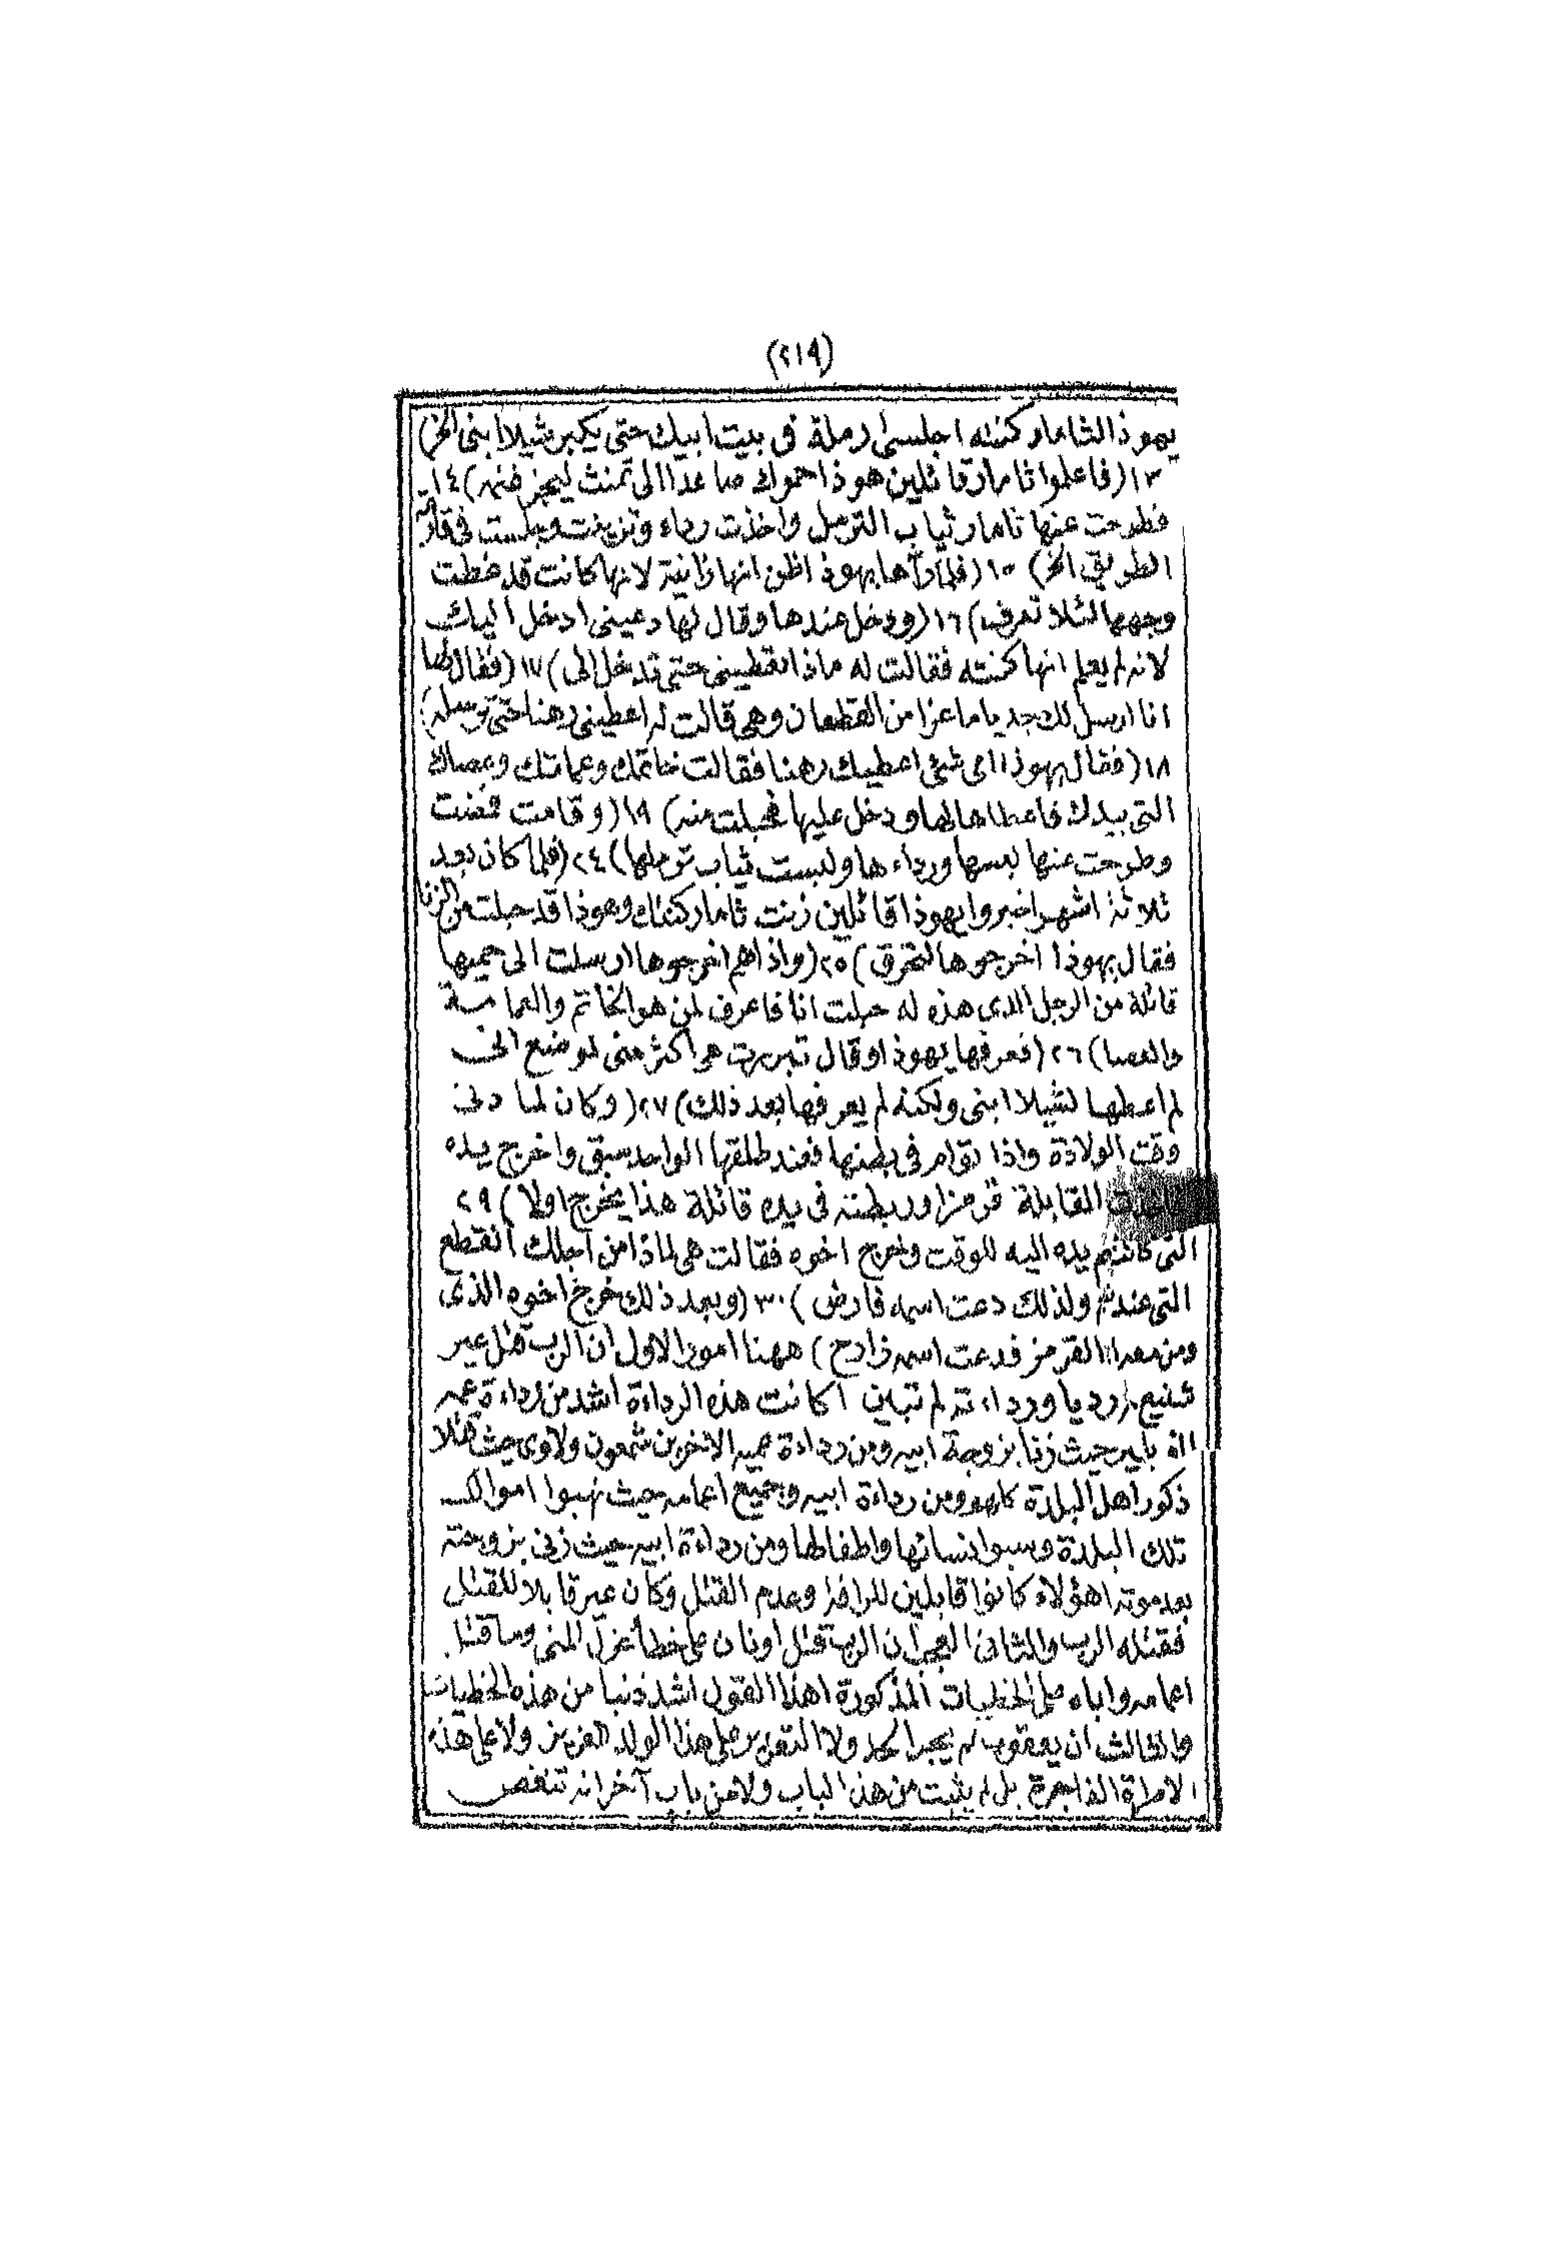 (٢١٩)
يهوذا لثامار كنته اجلسى ارملة فى بيت ابيك حتى يكبر شيلا ابنى الخ)
١٣ (فاعلموا ثامار قائلين هوذا حموك صاعدا الى تمنث ليجز غنمه) ١٤
فطرحت عنها ثامار ثياب الترمل واخذت رداء وتزينت وجلست فى قارعة
الطريق الخ) ١٥ (فلما رآها يهوذا ظن انها زانية لانها كانت قد غطت
وجهها لئلا تعرف) ١٦ (ودخل عندها وقال لها دعينى ادخل اليك
لانه لم يعلم انها كنته فقالت له ماذا تعطينى حتى تدخل الى) ١٧ (فقال لها
انا ارسل لك جديا ماعزا من القطعان وهى قالت له اعطينى رهنا حتى ترسله)
١٨ (فقال يهوذا اى شئ اعطيك رهنا فقالت خاتمك وعمامتك وعصاك
التى بيدك فاعطاها لها ودخل عليها فحبلت منه) ١٩ (وقامت فمضت
وطرحت عنها لبسها ورداءها ولبست ثياب ترملها) ٢٤ (فلما كان بعد
ثلاثة اشهر اخبروا يهوذا قائلين زنت ثامار كنتك وهوذا قد حبلت من الزنا
فقال يهوذا اخرجوها لتحرق) ٢٥ (واذ اهم اخرجوها ارسلت الى حميها
قائلة من الرجل الذى هذه له حبلت انا فاعرف لمن هو الخاتم والعمامة
والعصا) ٢٦ (فعرفها يهوذا وقال تبررت هى اكثر منى لموضع انى
لم اعطها لشيلا ابنى ولكنه لم يعرفها بعد ذلك) ٢٧ (وكان لما دنى
وقت الولادة واذا توام فى بطنها فعند طلقها الواحد سبق واخرج يده
القابلة قرمزا وربطته فى يده قائلة هذا يخرج اولا) ٢٩
يده اليه للوقت وخرج اخوه فقالت هى لماذا من اجلك انقطع
ولذلك دعت اسمه فارض) ٣٠ (وبعد ذلك خرج اخوه الذى
القرمز فدعت اسمه زارح) ههنا امور الاول ان الرب قتل عير
رديا ورداءته لم تبين اكانت هذه الرداءة اشد من رداءة عمه
حيث زنا بزوجة ابيه ومن رداءة عميه الاخرين شمعون ولاوى حيث قتلا
ذكور اهل البلدة كلهم ومن رداءة ابيه وجميع اعمامه حيث نهبوا اموال
تلك البلدة وسبوا نسائها واطفالها ومن رداءة ابيه حيث زنى بزوجته
بعد موته اهؤلاء كانوا قابلين للرافة وعدم القتل وكان عير قابلا للقتل
فقتله الرب والثانى العجب ان الرب قتل اونان على خطأ عزل المنى وما قتل
اعمامه واباه على الخطيات المذكورة اهذا القول اشد ذنبا من هذه الخطيات
والثالث ان يعقوب لم يجر الحد ولا التعزير على هذا الولد العزيز ولا على هذه
الامراة الفاجرة بل لم يثبت من هذا الباب ولا من باب آخر انه تنغص